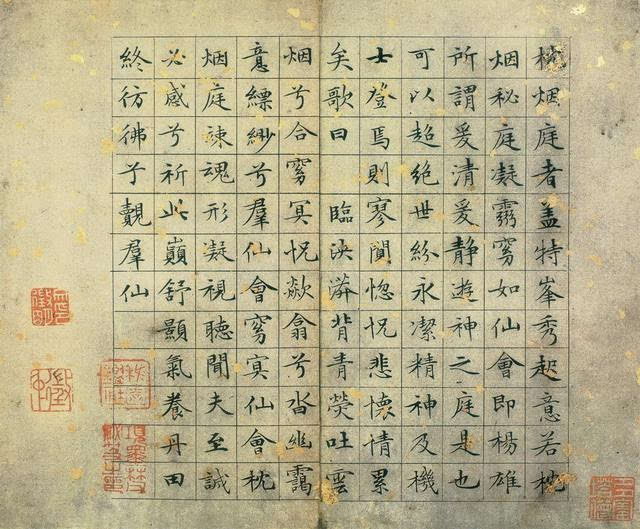 枕烟庭者蓋特峯秀起意若枕
烟秘庭凝靄窅如仙會即楊雄
所謂爰清爰靜遊神之庭是也
可以超絕世紛永潔精神及機
士登焉則寥闃惚怳悲懷情累
矣歌曰 臨泱漭背青熒吐雲
烟兮合窅冥怳欻翕兮沓幽靄
意縹緲兮羣仙會窅冥仙會枕
烟庭竦魂形凝視聽聞夫至誠
必感兮祈此巔舒顥氣養丹田
終彷彿兮覿羣仙